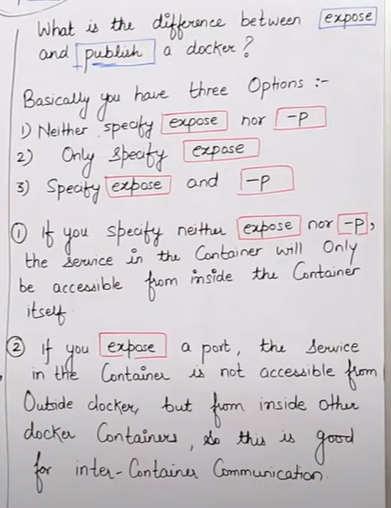 What is the difference between expose
and publish a docker?
Basically you have three Options :-
1) Neither specify expose nor -p
2) Only specify expose
3) Specify expose and -p
① If you specify neither expose nor -p,
the service in the Container will Only
be accessible from inside the Container
itself.
② If you expose a port, the Service
in the Container is not accessible from
Outside docker, but from inside other
docker Containers, so this is good
for inter-Container Communication.